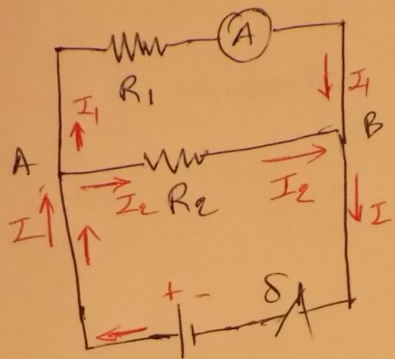 A
R1
I1
I1
A
B
I2
R2
I2
I
I
+ -
δ